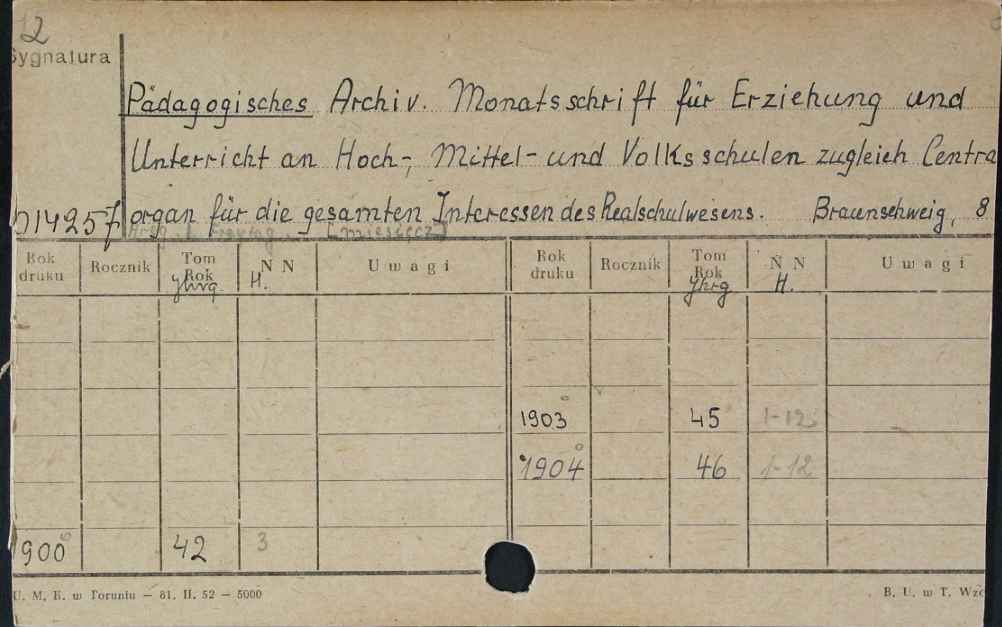 12
Sygnatura
Pädagogisches Archiv. Monatsschrift für Erziehung und
Unterricht an Hoch-, Mittel- und Volksschulen zugleich Centra
organ für die gesamten Interessen des Realschulwesens. Braunschweig, 8
Freytag [miesięcz]
Rok druku Rocznik Tom Rok Jhrg N N H. Uwagi Rok druku Rocznik Tom Rok Jhrg N N H. Uwagi
1903 45 1-12
1904 46 1-12
900 42 3
U. M. K. w Toruniu — 81. II. 52 — 5000
B. U. w T. Wzó